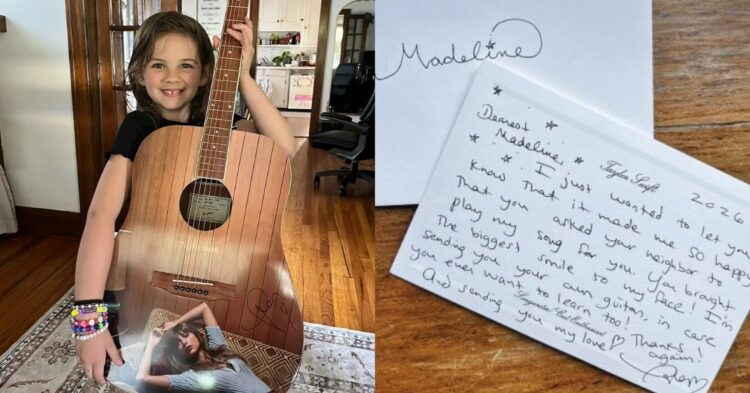 Madeline
Dearest
Madeline,
Taylor Swift
2026
I just wanted to let you
know that it made me so happy
that you asked your neighbor to
play my song for you. You brought
the biggest smile to my face! I'm
sending you your own guitar, in case
you ever want to learn too! Thanks!
And sending you my love again!